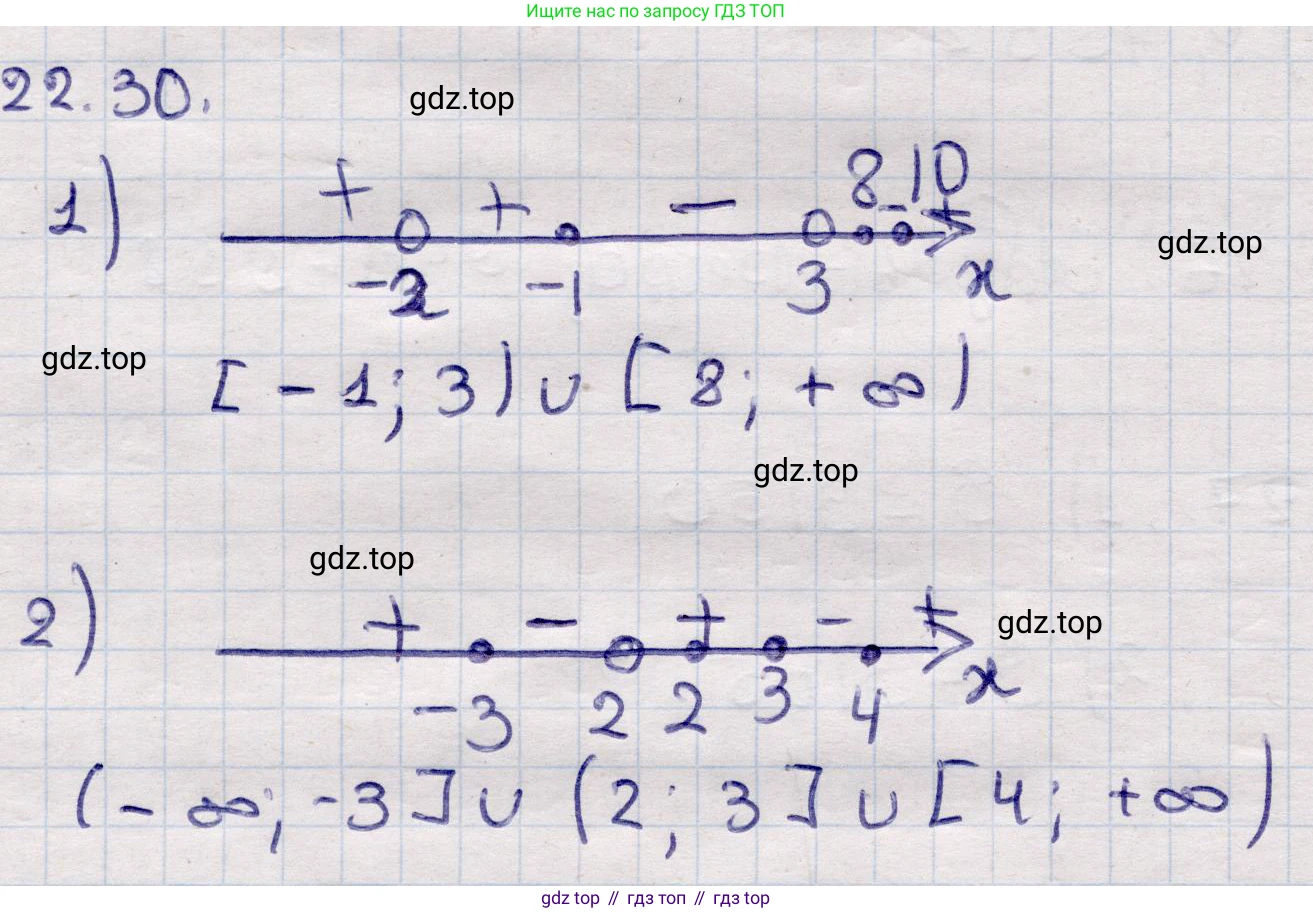 Ищите нас по запросу ГДЗ ТОП
22.30.
gdz.top
1) + + − 8 − 10 +
−2 −1 3 x
gdz.top
gdz.top
[ − 1; 3) ∪ [ 8; + ∞ )
gdz.top
gdz.top
2) + − + − +
gdz.top
−3 2 2 3 4 x
(− ∞; −3 ] ∪ (2; 3 ] ∪ [ 4; +∞ )
gdz top // гдз топ // гдз top